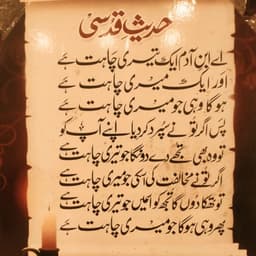 حدیث قدسی
اے ابن آدم ایک تیری چاہت ہے
اور ایک میری چاہت ہے
ہوگا وہی جو میری چاہت ہے
پس اگر تو نے سپرد کر دیا اپنے آپ کو
تو وہ بھی تجھے دے دونگا جو تیری چاہت ہے
اگر تو نے مخالفت کی اسکی جو میری چاہت ہے
تو تھکا دوں گا تجھ کو اسمیں جو تیری چاہت ہے
پھر وہی ہوگا جو میری چاہت ہے